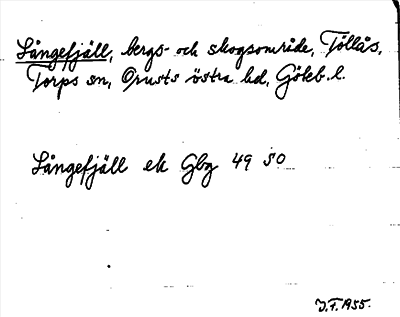 Långefjäll, bergs- och skogsområde, Töllås,
Torps sn, Orusts östra hd, Göteb. l.
Långefjäll ek Gbg 49 SO
J.F. 1955.